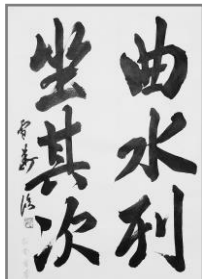 曲水列
坐其次